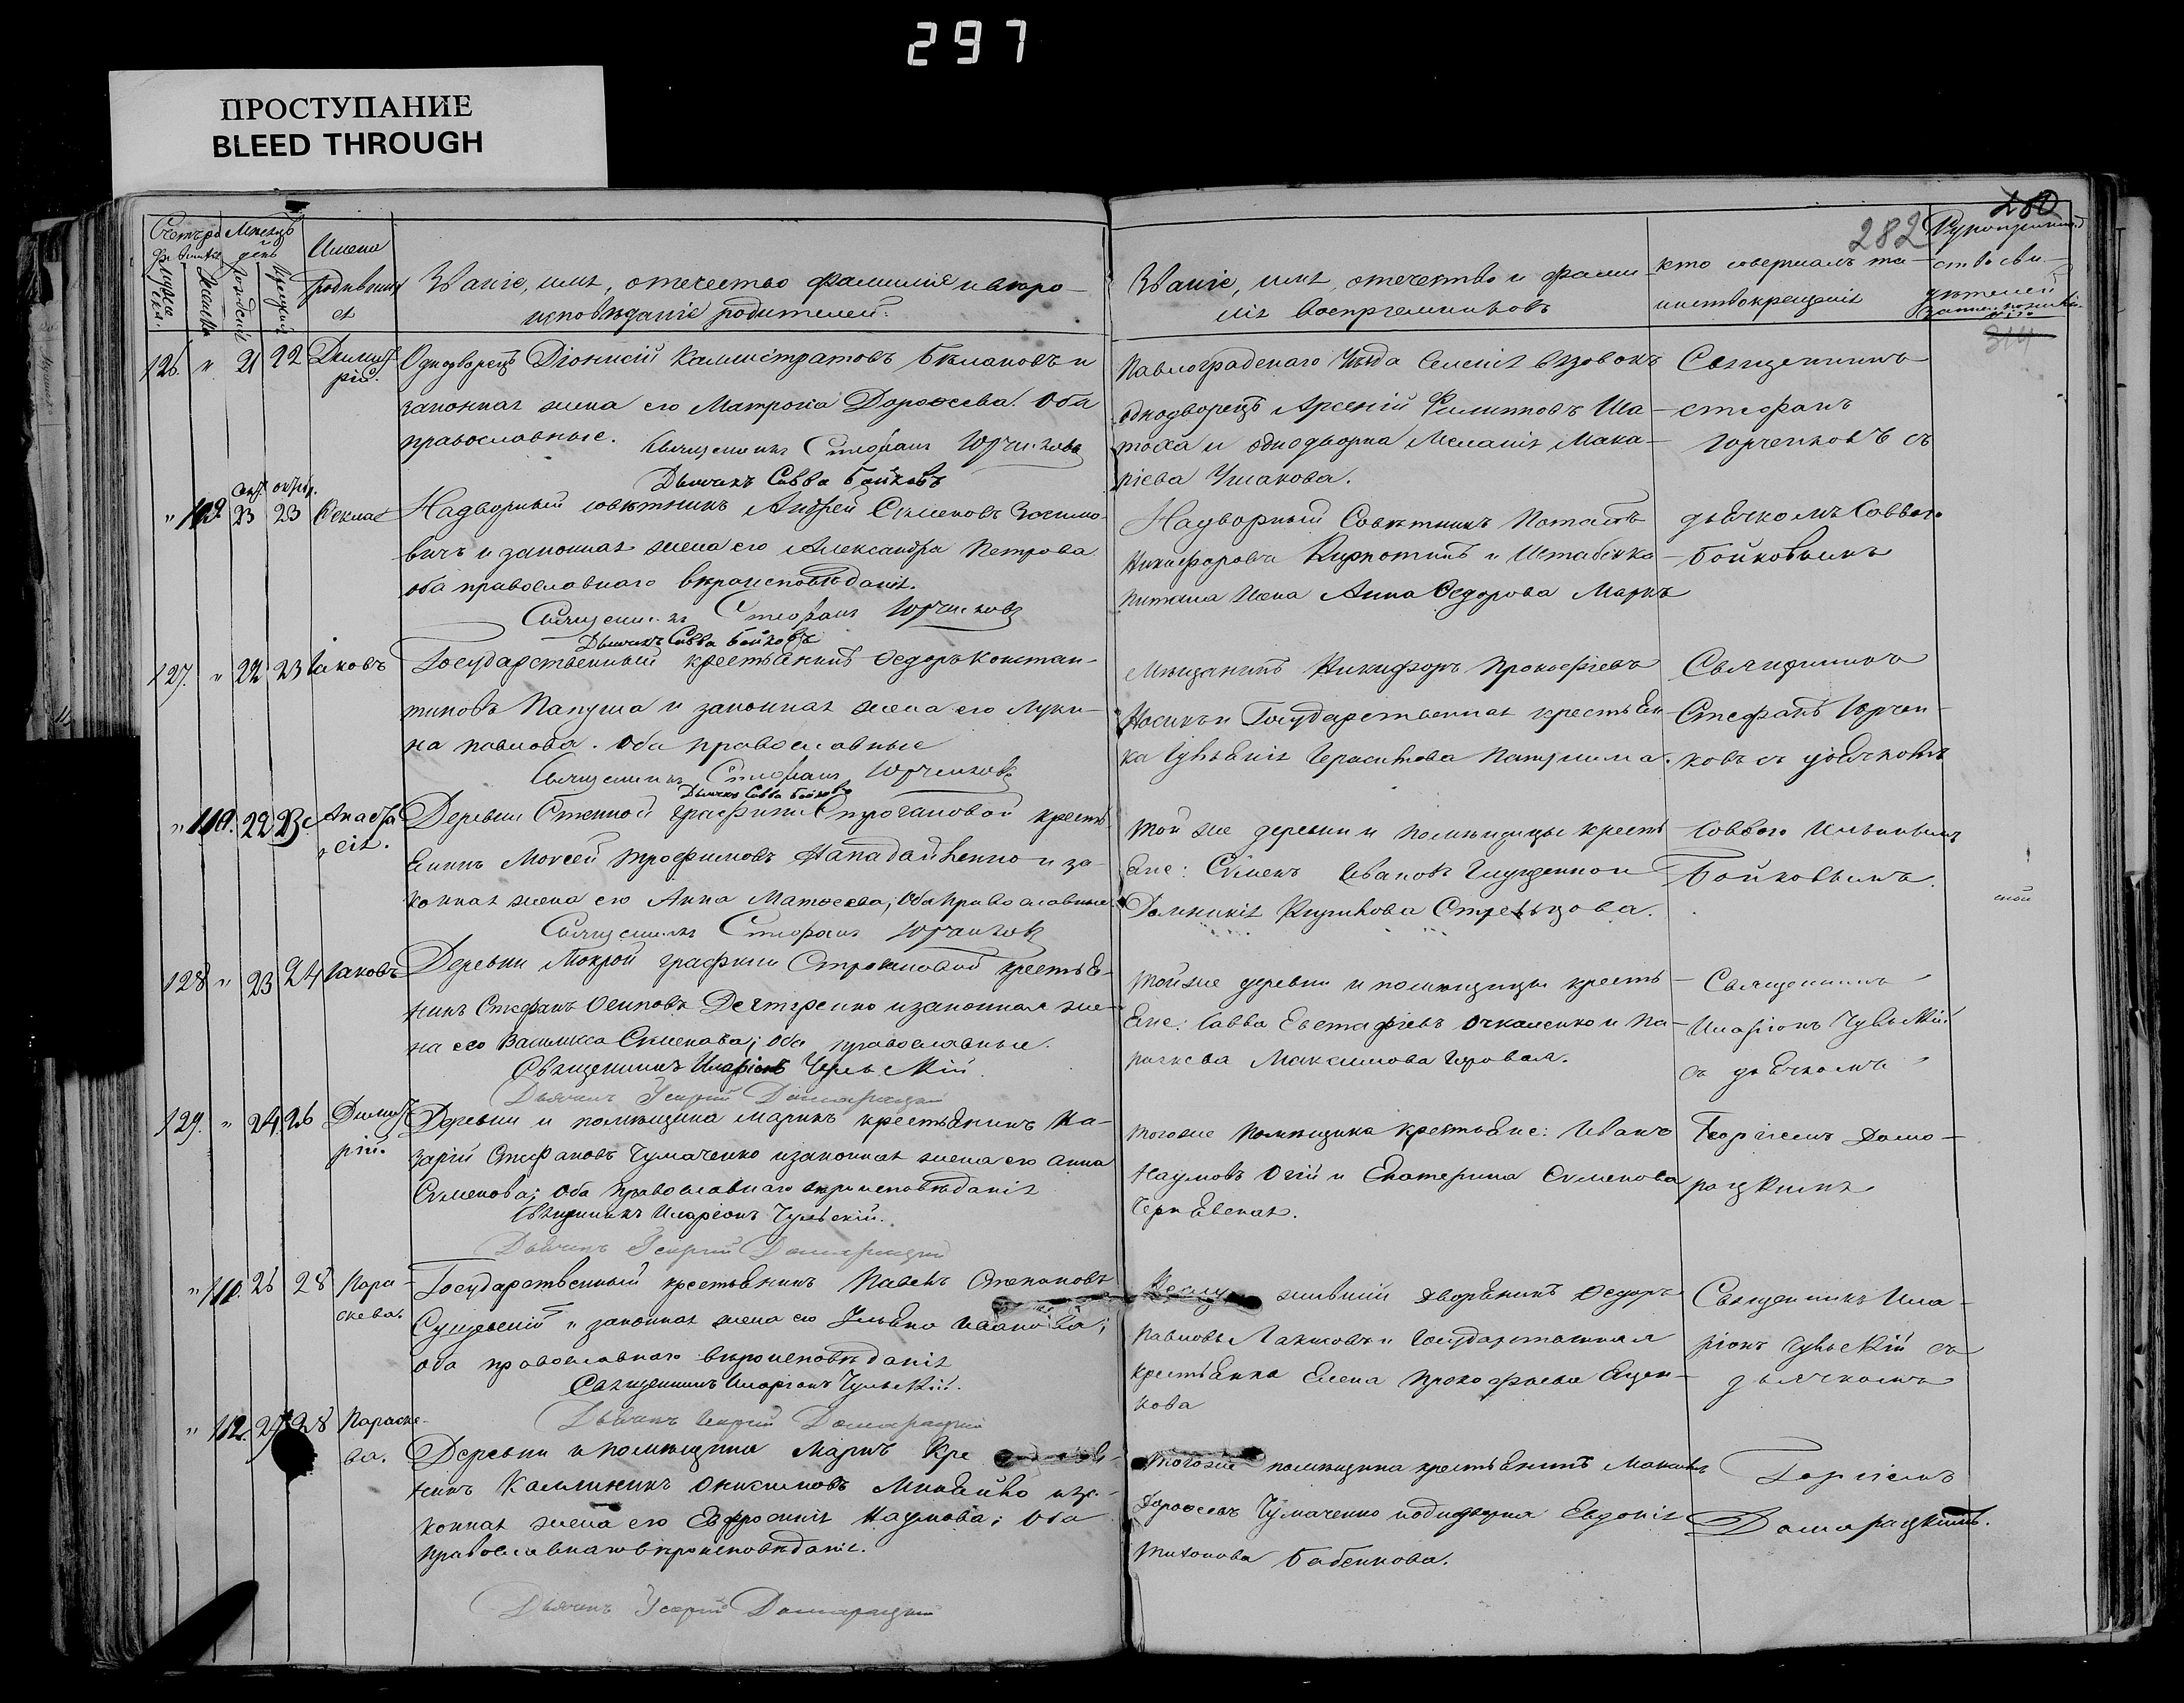 297
ПРОСТУПАНИЕ
BLEED THROUGH
280
282
314
Имена
Званіе, имя, отечество фамилія и вѣро-
исповѣданіе родителей.
Званіе, имя, отечество и фами-
лія воспріемниковъ
кто совершалъ та-
инство крещенія
126. " 21 22 Димит-
рій.
Однодворецъ Діонисій Каллистратовъ Бѣлановъ и
законная жена его Матрона Дороѳеева. Оба
православные. Священникъ Стефанъ Юрченковъ
Дьячикъ Савва Бойковъ
Павлоградскаго Уѣзда селенія
однодворецъ Арсеній Филиповъ Ша-
тоха и однодворка Меланія Мака-
ріева Ушакова.
Священникъ
Стефанъ
Юрченковъ съ
" 109 23 23 Ѳекла
Надворный совѣтникъ Андрей Семеновъ
вичъ и законная жена его Александра Петрова
оба православнаго вѣроисповѣданія.
Священникъ Стефанъ Юрченковъ
Дьячикъ Савва Бойковъ
Надворный Совѣтникъ Потапъ
Никифоровъ Кирпотинъ и Штабска-
питана жена Анна Ѳедорова Маркъ
дьячкомъ Саввою
Бойковымъ
127. " 22 23 Іаковъ
Государственный крестьянинъ Ѳедоръ Констан-
тиновъ Папуша и законная жена его Луки-
на Павлова. Оба православные
Священникъ Стефанъ Юрченковъ
Дьячикъ Савва Бойковъ
Мѣщанинъ Никифоръ Прокофіевъ
Носикъ и Государственная крестьян-
ка Герасимова
Священникъ
Стефанъ Юрчен-
ковъ съ дьячкомъ
" 110. 22 23 Анаста-
сія.
Деревни Степной графини Строгановой кресть-
янинъ Моѵсей Трофимовъ и за-
конная жена его Анна Матѳеева; Оба православные
Священникъ Стефанъ Юрченковъ
Той же деревни и помѣщицы кресть-
яне: Семенъ Ивановъ Глущенко и
Домникія Стрельцова.
Саввою
Бойковымъ.
128 " 23 24 Іаковъ
Деревни Мокрой графини Строгановой крестья-
нинъ Стефанъ Осиповъ Дегтренко и законная же-
на его Василиса Семенова; Оба православные.
Священникъ Иларіонъ Чульскій.
Дьячикъ Георгій Домарацкій
Той же деревни и помѣщицы кресть-
яне: Савва Евстафіевъ Очкаленко и Па-
раскева Максимова
Священникъ
Иларіонъ Чульскій
съ дьячкомъ
129. " 24 26 Димит-
рій.
Деревни и помѣщика Маркъ крестьянинъ На-
зарій Стефановъ Чумаченко и законная жена его Анна
Семенова; Оба православнаго вѣроисповѣданія
Священникъ Иларіонъ Чульскій.
Дьячикъ Георгій Домарацкій
Того же помѣщика крестьяне: Иванъ
Наумовъ Огій и Екатерина Семенова
Георгіемъ Дома-
рацкимъ
" 111. 26 28 Пара-
скева.
Государственный крестьянинъ Павелъ Степановъ
и законная жена его Ульяна Иванова;
оба православнаго вѣроисповѣданія
Священникъ Иларіонъ Чульскій.
Дьячикъ Георгій Домарацкій
дворянинъ Ѳедоръ
Павловъ и Государственная
крестьянка Елена Прокофьева Ецен-
кова
Священникъ Ила-
ріонъ Чульскій съ
дьячкомъ
" 112. 27 28 Параске-
ва.
Деревни и помѣщика Маркъ Кре
нинъ Каллиникъ Онисимовъ и за-
конная жена его Евфросинія Наумова; Оба
православнаго вѣроисповѣданія.
Дьячикъ Георгій Домарацкій
Того же помѣщика крестьянинъ
Дороѳеевъ Чумаченко и однодворка Евдокія
Тихонова Бабенкова.
Георгіемъ
Домарацкимъ.